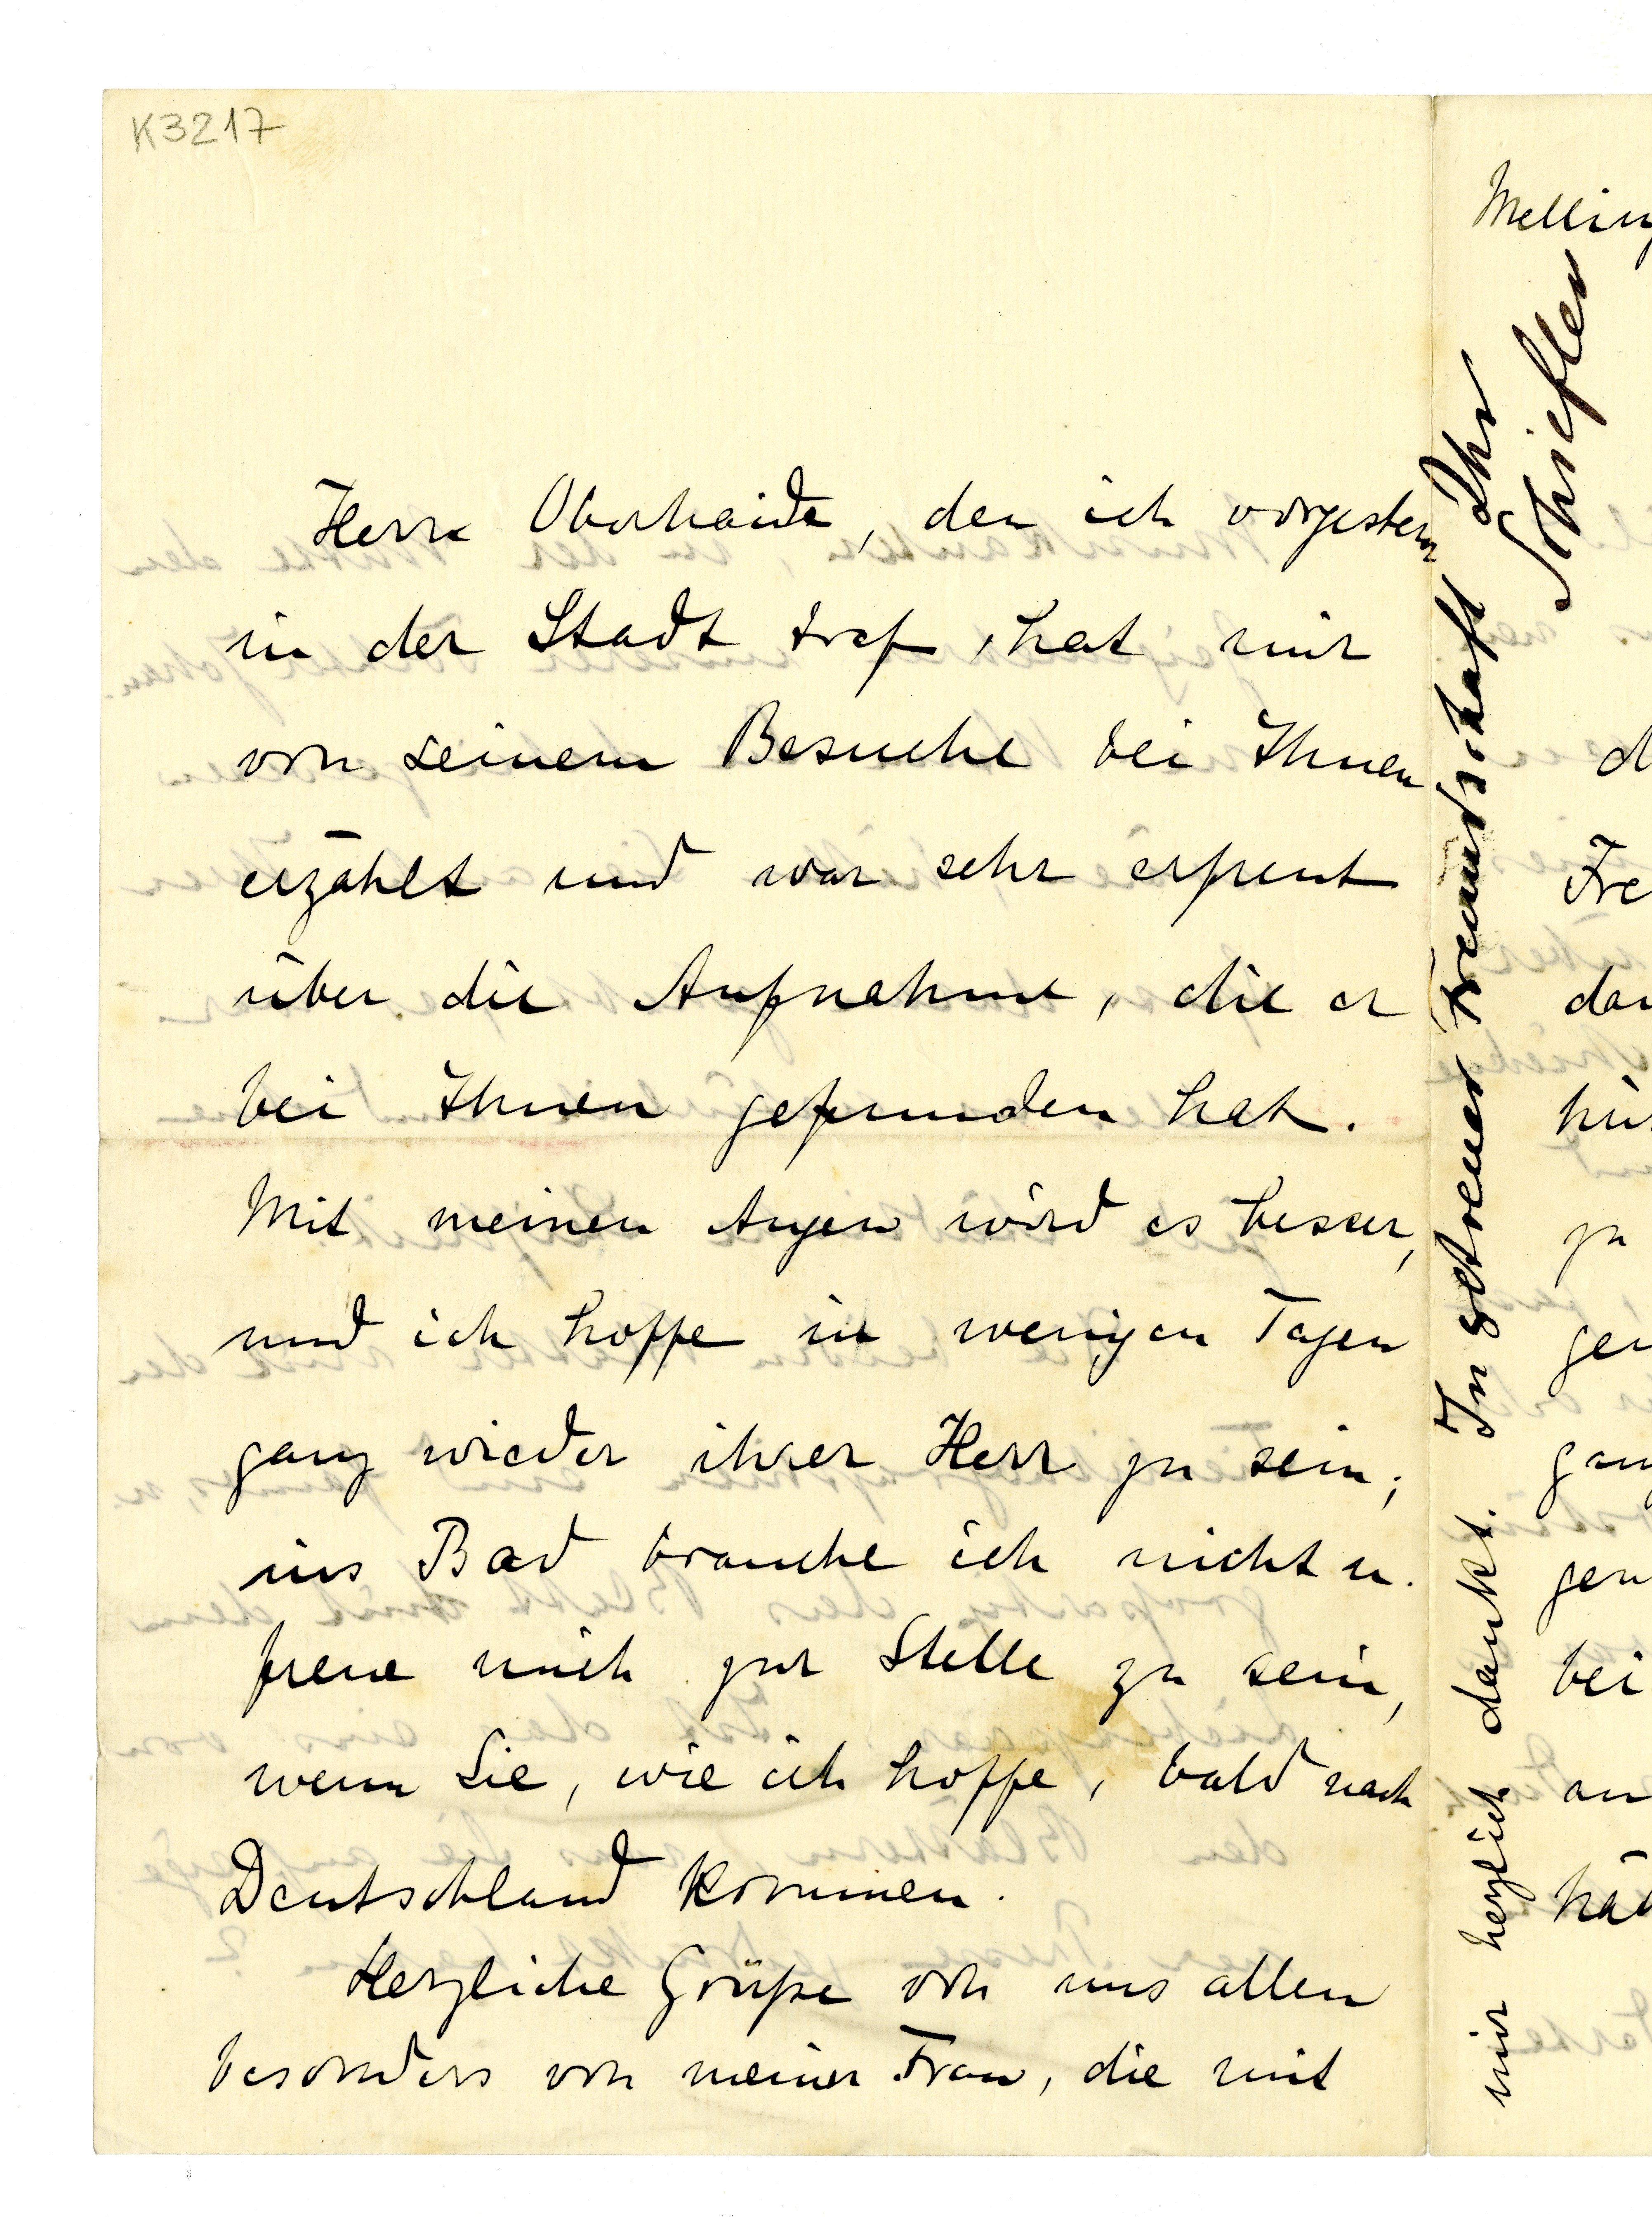 K3217
Herr Oberheide, den ich vorgestern
in der Stadt traf, hat mir
von seinem Besuche bei Ihnen
erzählt und war sehr erfreut
über die Aufnahme, die er
bei Ihnen gefunden hat.
Mit meinen Augen wird es besser,
und ich hoffe in wenigen Tagen
ganz wieder ihrer Herr zu sein;
ins Bad brauche ich nicht u.
freue mich zur Stelle zu sein,
wenn Sie, wie ich hoffe, bald nach
Deutschland kommen.
Herzliche Grüße von uns allen
besonders von meiner Frau, die mit
mir herzlich dankt. In getreuer Freundschaft Ihr
Schiefler
Melling
d
Fre
dan
zu
gen
bei